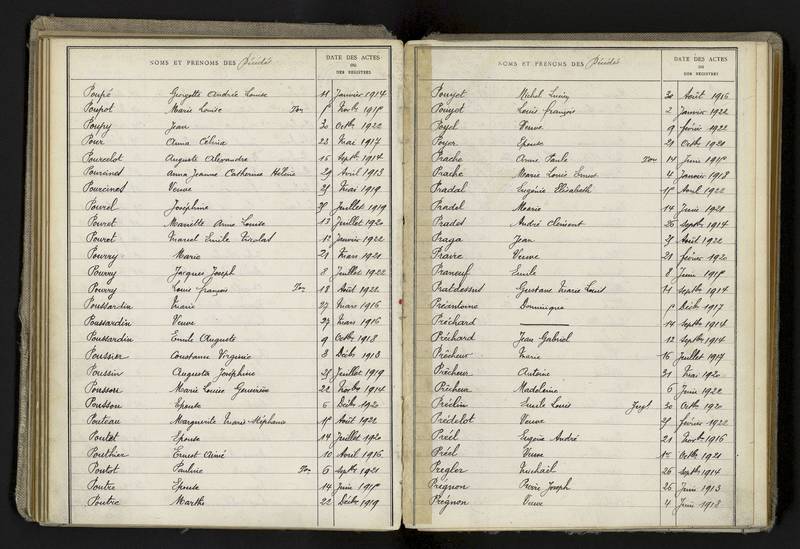 NOMS ET PRÉNOMS DES Décédés
DATE DES ACTES
OU
DES REGISTRES
Poupé Georgette Andrée Louise 11 Janvier 1914
Poupot Marie Louise Novbre
Poupy Jean 30 Octbre 1922
Pour Anna Célina 23 Mai 1917
Pourcelot Auguste Alexandre 15 Septbre 1914
Pourcines Anna Jeanne Catherine Hélène 29 Avril 1913
Pourcines Veuve Mai 1919
Pourel Joséphine Juillet 1919
Pouret Mariette Anne Louise 13 Juillet 1920
Pourot Marcel Emile Nicolas Janvier 1922
Pourry Marie 21 Mars 1921
Pourry Jacques Joseph 8 Juillet 1922
Pourry Louis François 18 Août 1922
Poussardin Marie 27 Mars 1916
Poussardin Veuve 27 Mars 1916
Poussardin Emile Auguste 9 Octbre 1918
Poussier Constance Virginie 8 Décbre 1913
Poussin Augusta Joséphine Juillet 1919
Pousson Marie Louise Geneviève 22 Novbre 1914
Pousson Epouse 6 Décbre 1920
Pouteau Marguerite Marie Stéphanie Août 1921
Poutet Epouse 14 Juillet 1920
Pouthier Ernest Aimé 10 Avril 1916
Poutot Pauline 6 Septbre 1921
Poutre Epouse 14 Juin
Poutrie Marthe 22 Décbre 1919
NOMS ET PRÉNOMS DES Décédés
DATE DES ACTES
OU
DES REGISTRES
Pouyet Michel Lucien 30 Août 1916
Pouyot Louis François 2 Janvier 1922
Poyel Veuve 9 Février 1922
Poyer Epouse 29 Octbre 1921
Prache Anne Paule 14 Juin
Prache Marie Louis Ernest 4 Janvier 1918
Pradal Eugénie Elisabeth Avril 1922
Pradel Marie 14 Juin 1921
Pradet André Clément 26 Septbre 1914
Praga Jean Août 1922
Praire Veuve 21 Février 1920
Praneuf Emile 8 Juin
Pratdessus Gustave Marie Louis 21 Septbre 1914
Préantoine Dominique Décbre 1917
Préchard 14 Septbre 1914
Préchard Jean Gabriel 12 Septbre 1914
Prêcheur Marie 16 Juillet 1917
Prêcheur Antoine 31 Mai 1920
Prêcheur Madeleine 6 Juin 1922
Préclin Emile Louis Jugt 30 Octbre 1920
Prédelot Veuve Février 1922
Préel Eugène André 21 Novbre 1916
Préel Veuve Octbre 1921
Pregler Michaël 26 Septbre 1914
Prégnon Pierre Joseph 25 Juin 1913
Prégnon Veuve 4 Juin 1918